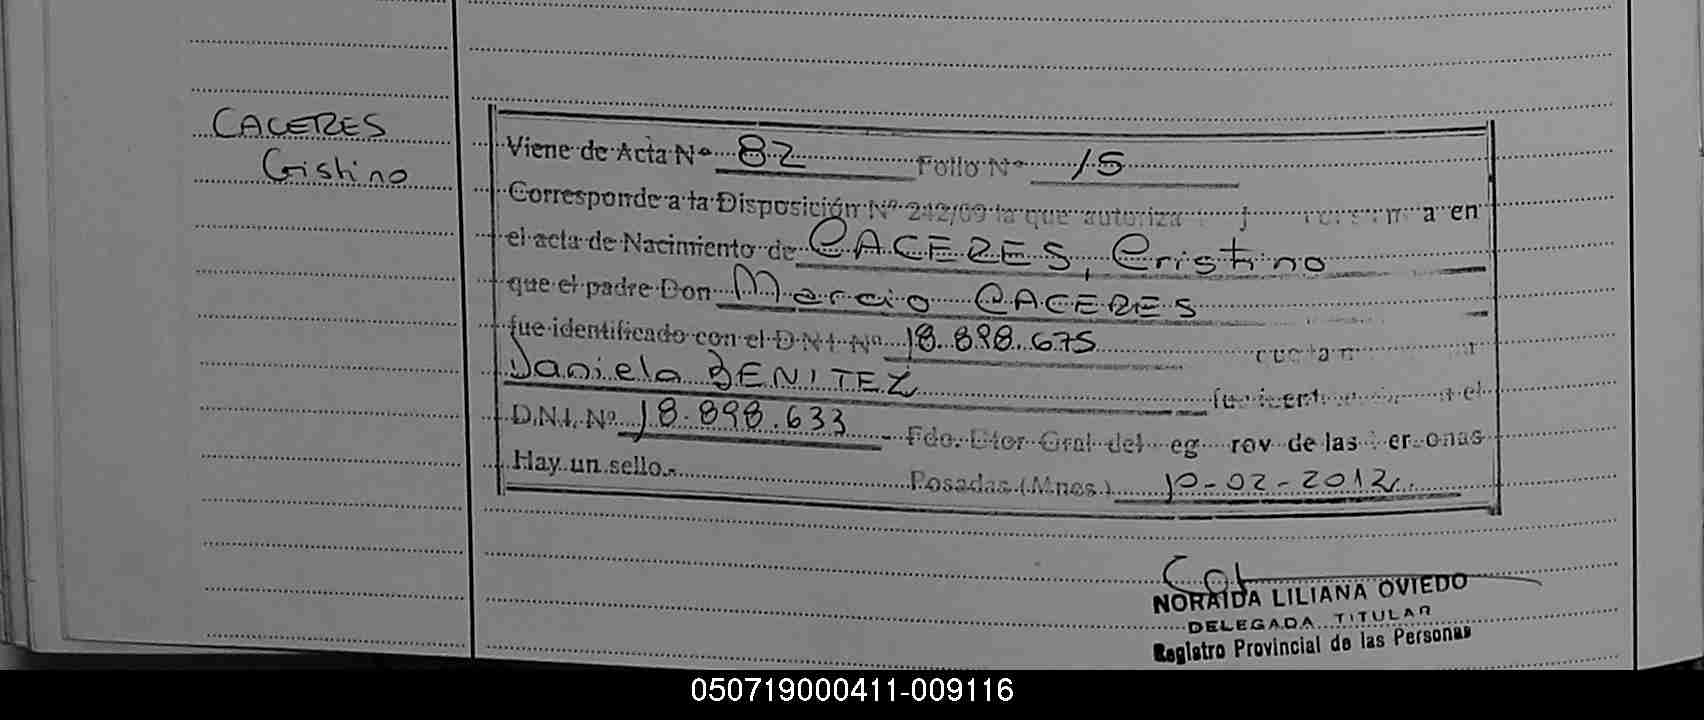 CACERES
Cristino
Viene de Acta Nº 82 Folio Nº 15
Corresponde a la Disposición Nº 242/69 la que autoriza a en
el acta de Nacimiento de CACERES, Cristino
que el padre Don Marcio CACERES
fue identificado con el D.N.I. Nº 18.898.675
Daniela BENITEZ
D.N.I. Nº 18.898.633 - Fdo. Dtor Gral del eg rov de las er onas
Hay un sello.- Posadas (Mnes.) 10-02-2012
NORAIDA LILIANA OVIEDO
DELEGADA TITULAR
Registro Provincial de las Personas
050719000411-009116